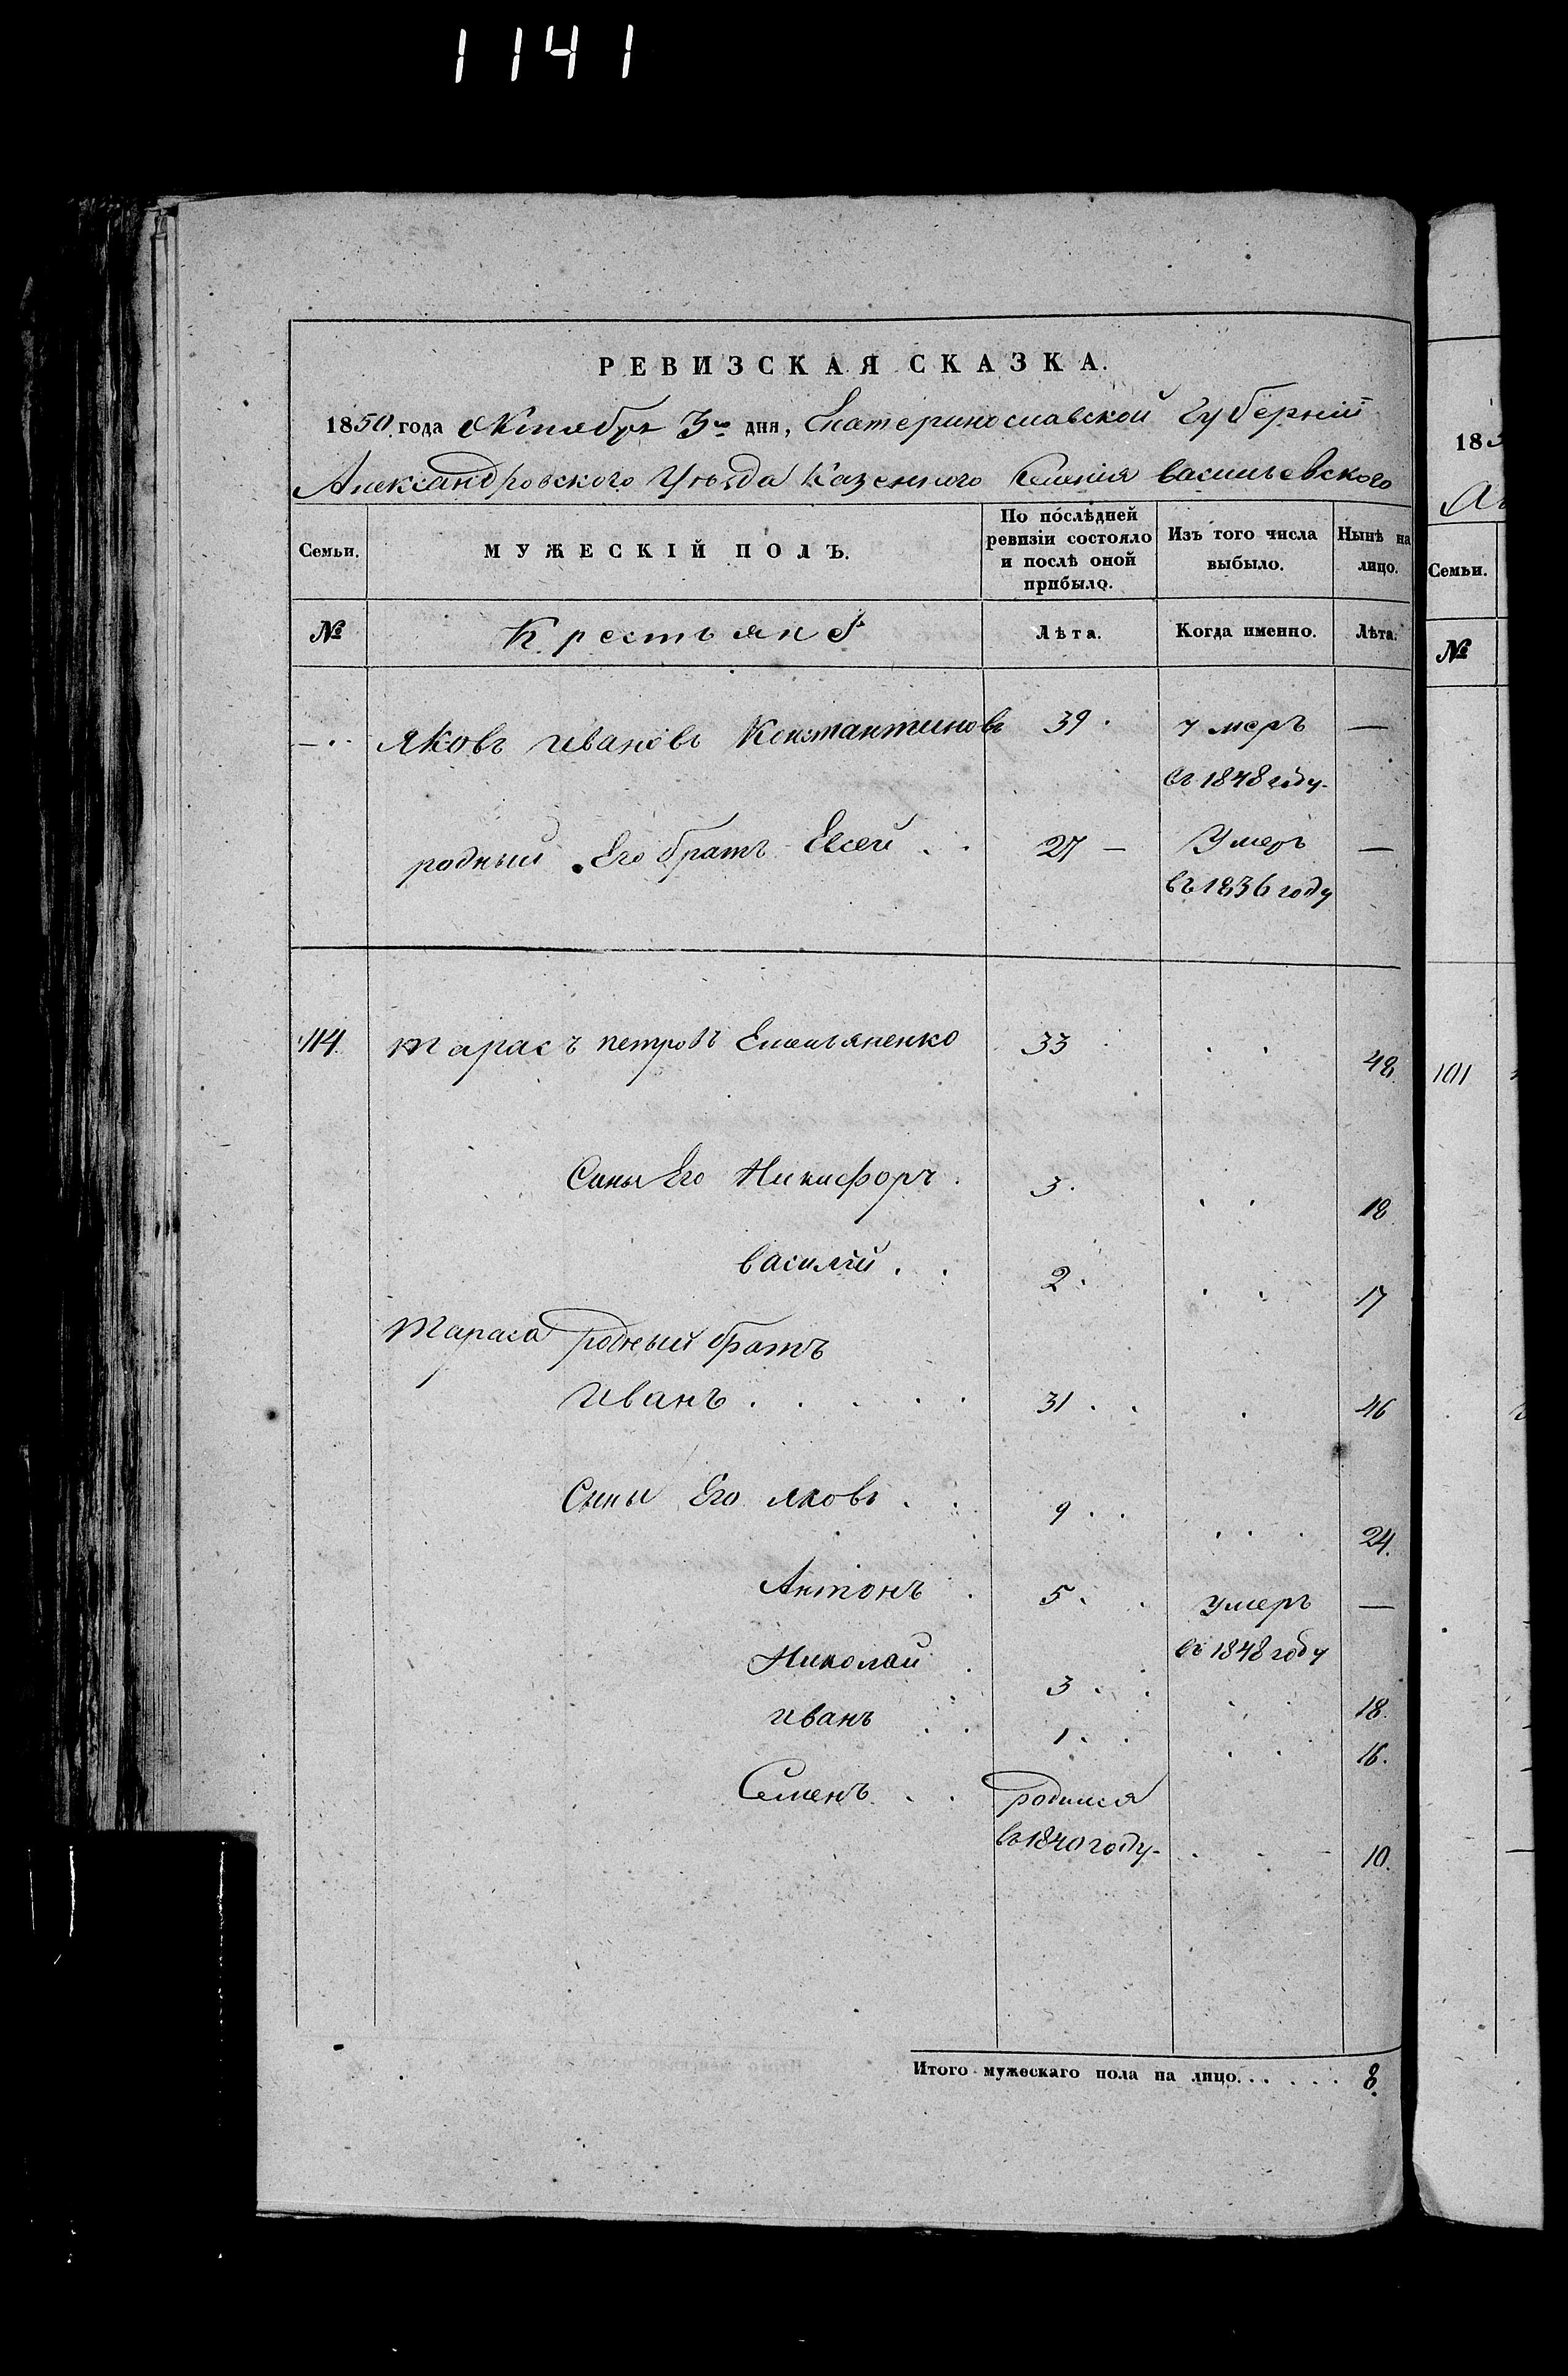 1141
РЕВИЗСКАЯ СКАЗКА.
1850 года Октября 3го дня, Екатеринославской Губерніи
Александровского Уѣзда Казенного Селенія васильевского
Семьи. МУЖЕСКІЙ ПОЛЪ. По послѣдней ревизіи состояло и послѣ оной прибыло. Изъ того числа выбыло. Нынѣ на лицо.
№ Крестьяне Лѣта. Когда именно. Лѣта.
Яковъ Ивановъ Константиновъ 39. умеръ —
въ 1848 году.
родный Его братъ Евсей . . 27 — Умеръ —
въ 1836 году
114. Тарасъ петровъ Емельяненко 33 . . 48.
Сины Его Никифоръ . 3. . . 18.
василій . . 2. . . 17
Тараса родный братъ
Иванъ . . . . . 31 . . . 46
Сыны Его яковъ . . 9 . . . . . 24.
Антонъ . 5. . умеръ —
въ 1848 году
Николай . 3 . . . . 18.
иванъ . . 1. . . . 16.
Семенъ . . родился
въ 1840 году. . . . 10.
Итого мужескаго пола на лицо. . . . . . 8.
185
Семьи.
№
101